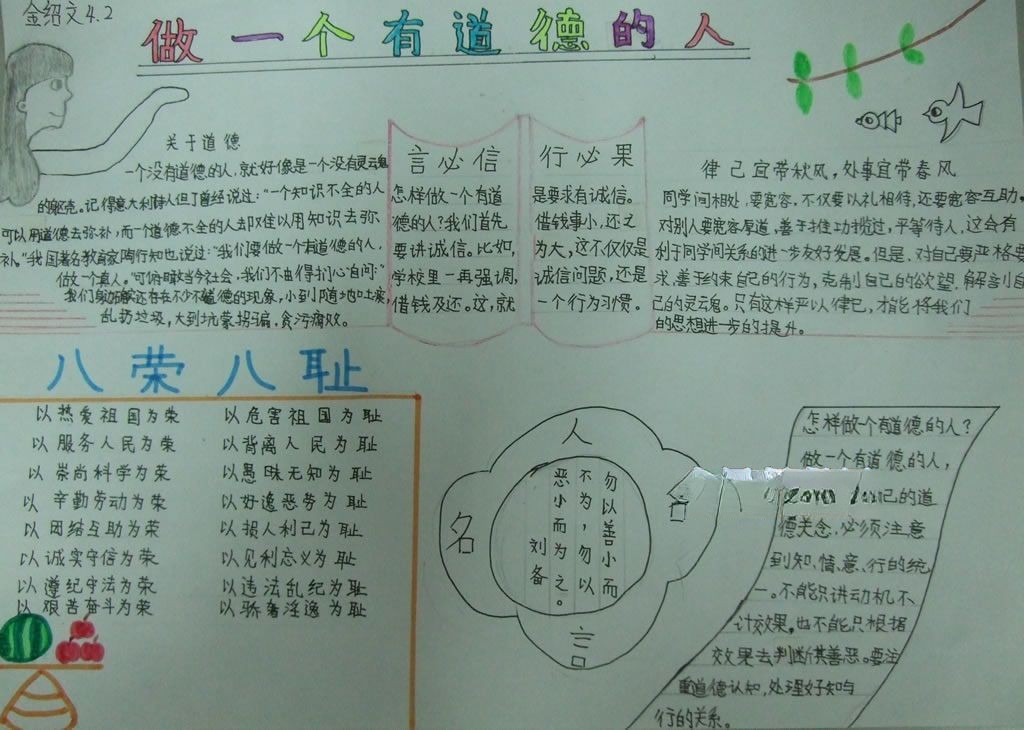 金绍文4.2
做一个有道德的人
关于道德
一个没有道德的人,就好像是一个没有灵魂
的躯壳。记得意大利诗人但丁曾经说过:“一个知识不全的人
可以用道德去弥补,而一个道德不全的人却难以用知识去弥
补。”我国著名教育家陶行知也说过:“我们要做一个有道德的人,
做一个真人。”可俯瞰当今社会,我们不由得扪心自问:“
我们身边还存在不少不道德的现象,小到随地吐痰,
乱扔垃圾,大到坑蒙拐骗,贪污腐败。
言必信
怎样做一个有道
德的人?我们首先
要讲诚信。比如,
学校里一再强调,
借钱及还。这,就
行必果
是要求有诚信。
借钱事小,还之
为大,这不仅仅是
诚信问题,还是
一个行为习惯。
律己宜带秋风,处事宜带春风
同学间相处,要宽容,不仅要以礼相待,还要宽容互助。
对别人要宽容厚道,善于推功揽过,平等待人,这会有
利于同学间关系的进一步友好发展。但是,对自己要严格要
求,善于约束自己的行为,克制自己的欲望,解剖自
己的灵云魂。只有这样严以律已,才能将我们
的思想进一步的提升。
八荣八耻
以热爱祖国为荣 以危害祖国为耻
以服务人民为荣 以背离人民为耻
以崇尚科学为荣 以愚昧无知为耻
以辛勤劳动为荣 以好逸恶劳为耻
以团结互助为荣 以损人利己为耻
以诚实守信为荣 以见利忘义为耻
以遵纪守法为荣 以违法乱纪为耻
以艰苦奋斗为荣 以骄奢淫逸为耻
名人言
勿以善小而
不为,勿以
恶小而为之。
刘备
怎样做一个有道德的人?
做一个有道德的人,
己的道
德关念,必须注意
到知、情、意、行的统
一。不能只讲动机不
计效果。也不能只根据
效果去判断其善恶。要注
重道德认知,处理好知与
行的关系。